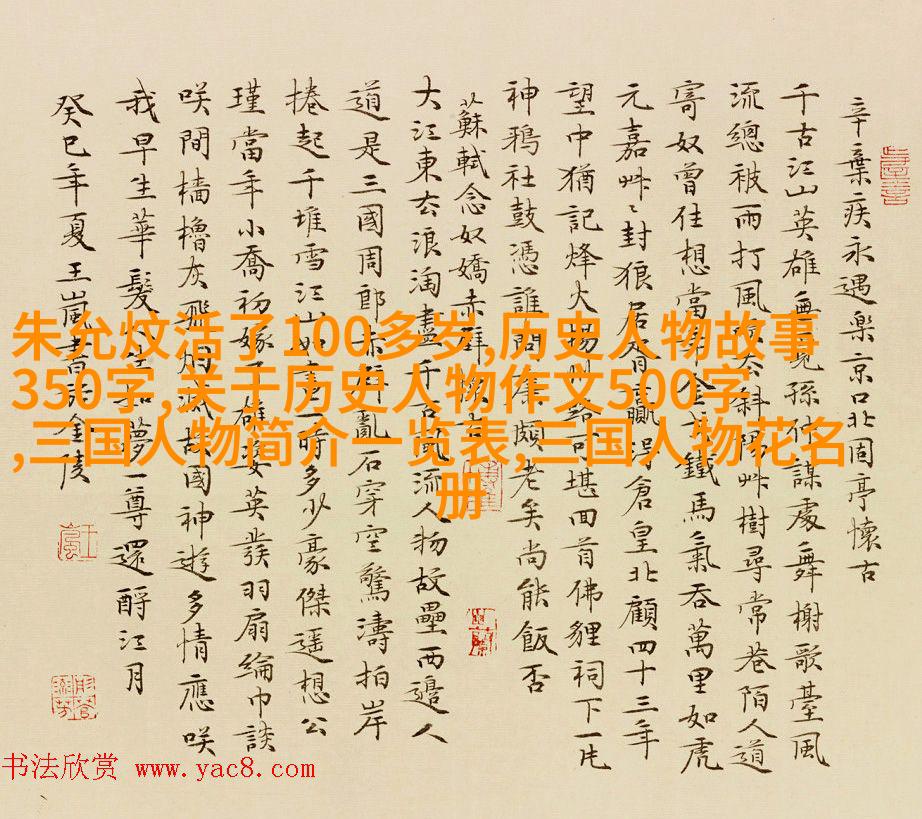 辛棄疾永遇樂京口北固亭懷古
千古江山英雄無覓孫仲謀處舞榭歌臺風
流總被雨打風吹去斜陽艸樹尋常巷陌人道
寄奴曾住想當年金戈鐵馬氣吞萬里如虎
元嘉艸〻封狼居胥贏得倉皇北顧四十三年
望中猶記烽火揚州路可堪回首佛貍祠下一片
神鴉社鼓憑誰問廉頗老矣尚能飯否
蘇軾念奴嬌赤壁懷古
大江東去浪淘盡千古風流人物故壘西邊人
道是三國周郎赤壁亂石穿空驚濤拍岸
捲起千堆雪江山如畫一時多少豪傑遥想公
瑾當年小喬初嫁了雄姿英發羽扇綸巾談
咲間檣櫓灰飛烟滅故國神遊多情應咲
我早生華髮人生如夢一尊還酹江月
癸巳年夏王嵐書於金陵
朱允炆活了100多岁,历史人物故事
350字,关于历史人物作文500字
,三国人物简介一览表,三国人物花名
册
书法欣赏 www.yac8.com